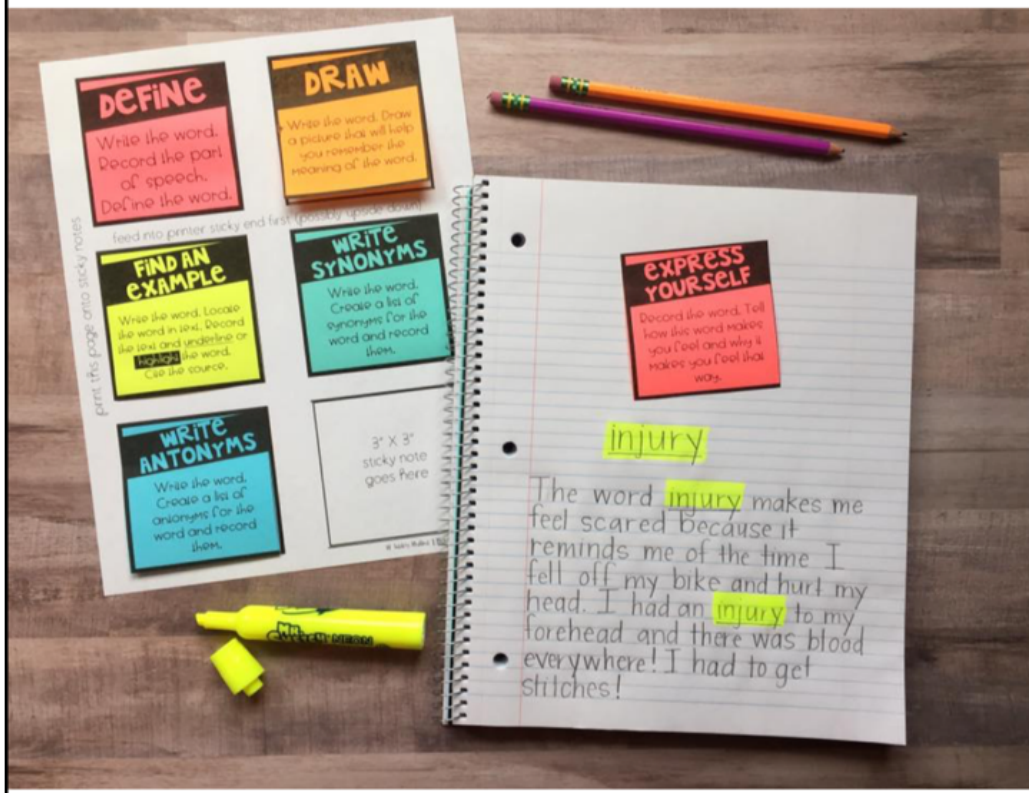 DEFINE
Write the word.
Record the part
of speech.
Define the word.
DRAW
Write the word. Draw
a picture that will help
you remember the
meaning of the word.
print this page onto sticky notes
feed into printer sticky end first (possibly upside down)
FIND AN
EXAMPLE
Write the word. Locate
the word in text. Record
the text and underline or
highlight the word.
Cite the source.
WRITE
SYNONYMS
Write the word.
Create a list of
synonyms for the
word and record
them.
WRITE
ANTONYMS
Write the word.
Create a list of
antonyms for the
word and record
them.
3" X 3"
sticky note
goes here
NEON
EXPRESS
YOURSELF
Record the word. Tell
how this word makes
you feel and why it
makes you feel that
way.
injury
The word injury makes me
feel scared because it
reminds me of the time I
fell off my bike and hurt my
head. I had an injury to my
forehead and there was blood
everywhere! I had to get
stitches!